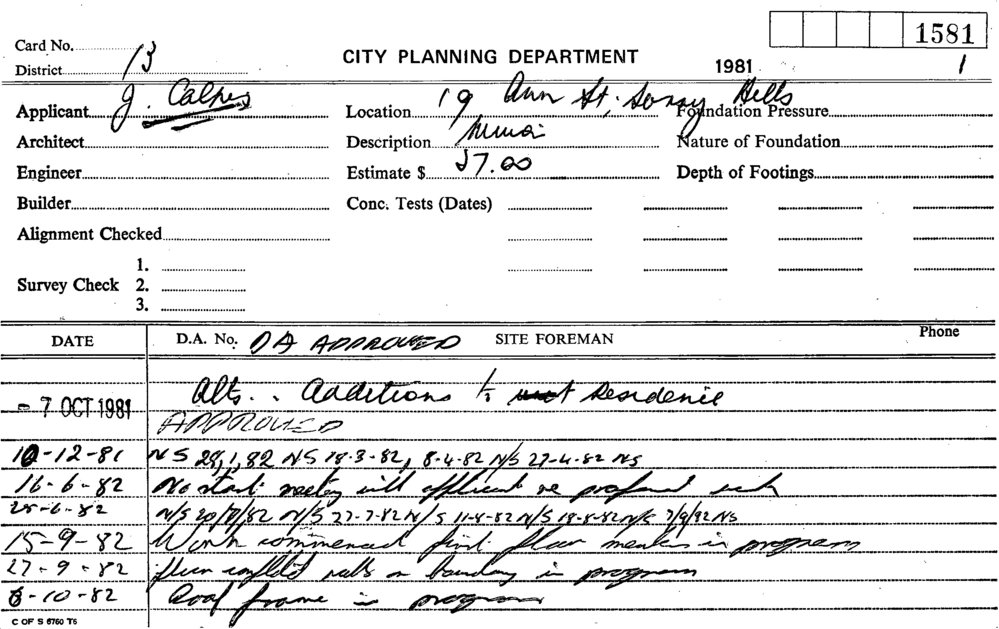 1581
Card No.
District 13
CITY PLANNING DEPARTMENT
1981 1
Applicant J.
Location 19 Ann St, Surry Hills
Foundation Pressure
Architect
Description
Nature of Foundation
Engineer
Estimate $ 27.00
Depth of Footings
Builder
Conc. Tests (Dates)
Alignment Checked
1.
Survey Check 2.
3.
DATE D.A. No. DA APPROVED SITE FOREMAN Phone
- 7 OCT 1981 Alts. Additions to Residence
APPROVED
10-12-81 NS 28,1,82 NS 18-3-82, 8-4-82 N/S 27-4-82 NS
16-6-82 No start meeting with applicant re
N/S 27-7-82 N/S 11-8-82 N/S 18-8-82 N/S 7/9/82 NS
15-9-82 Work commenced first floor in progress
27-9-82 floor walls on boundary in progress
8-10-82 Roof frame in progress
C OF S 6760 T5